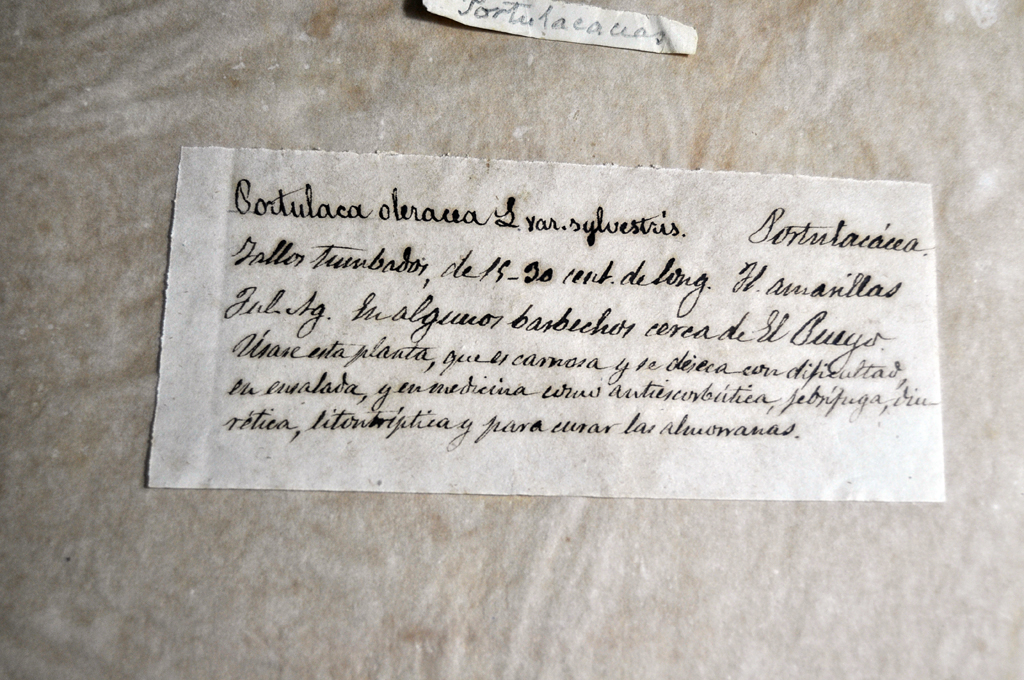 Portulacaceas
Portulaca oleracea L var. sylvestris. Portulacácea.
Tallos tumbados, de 15-30 cent. de long. Fl. amarillas
Jul. Ag. En algunos barbechos cerca de El Pueyo.
Úsase esta planta, que es carnosa y se deseca con dificultad,
en ensalada, y en medicina como antiescorbútica, febrífuga, diu
rética, litontríptica y para curar las almorranas.